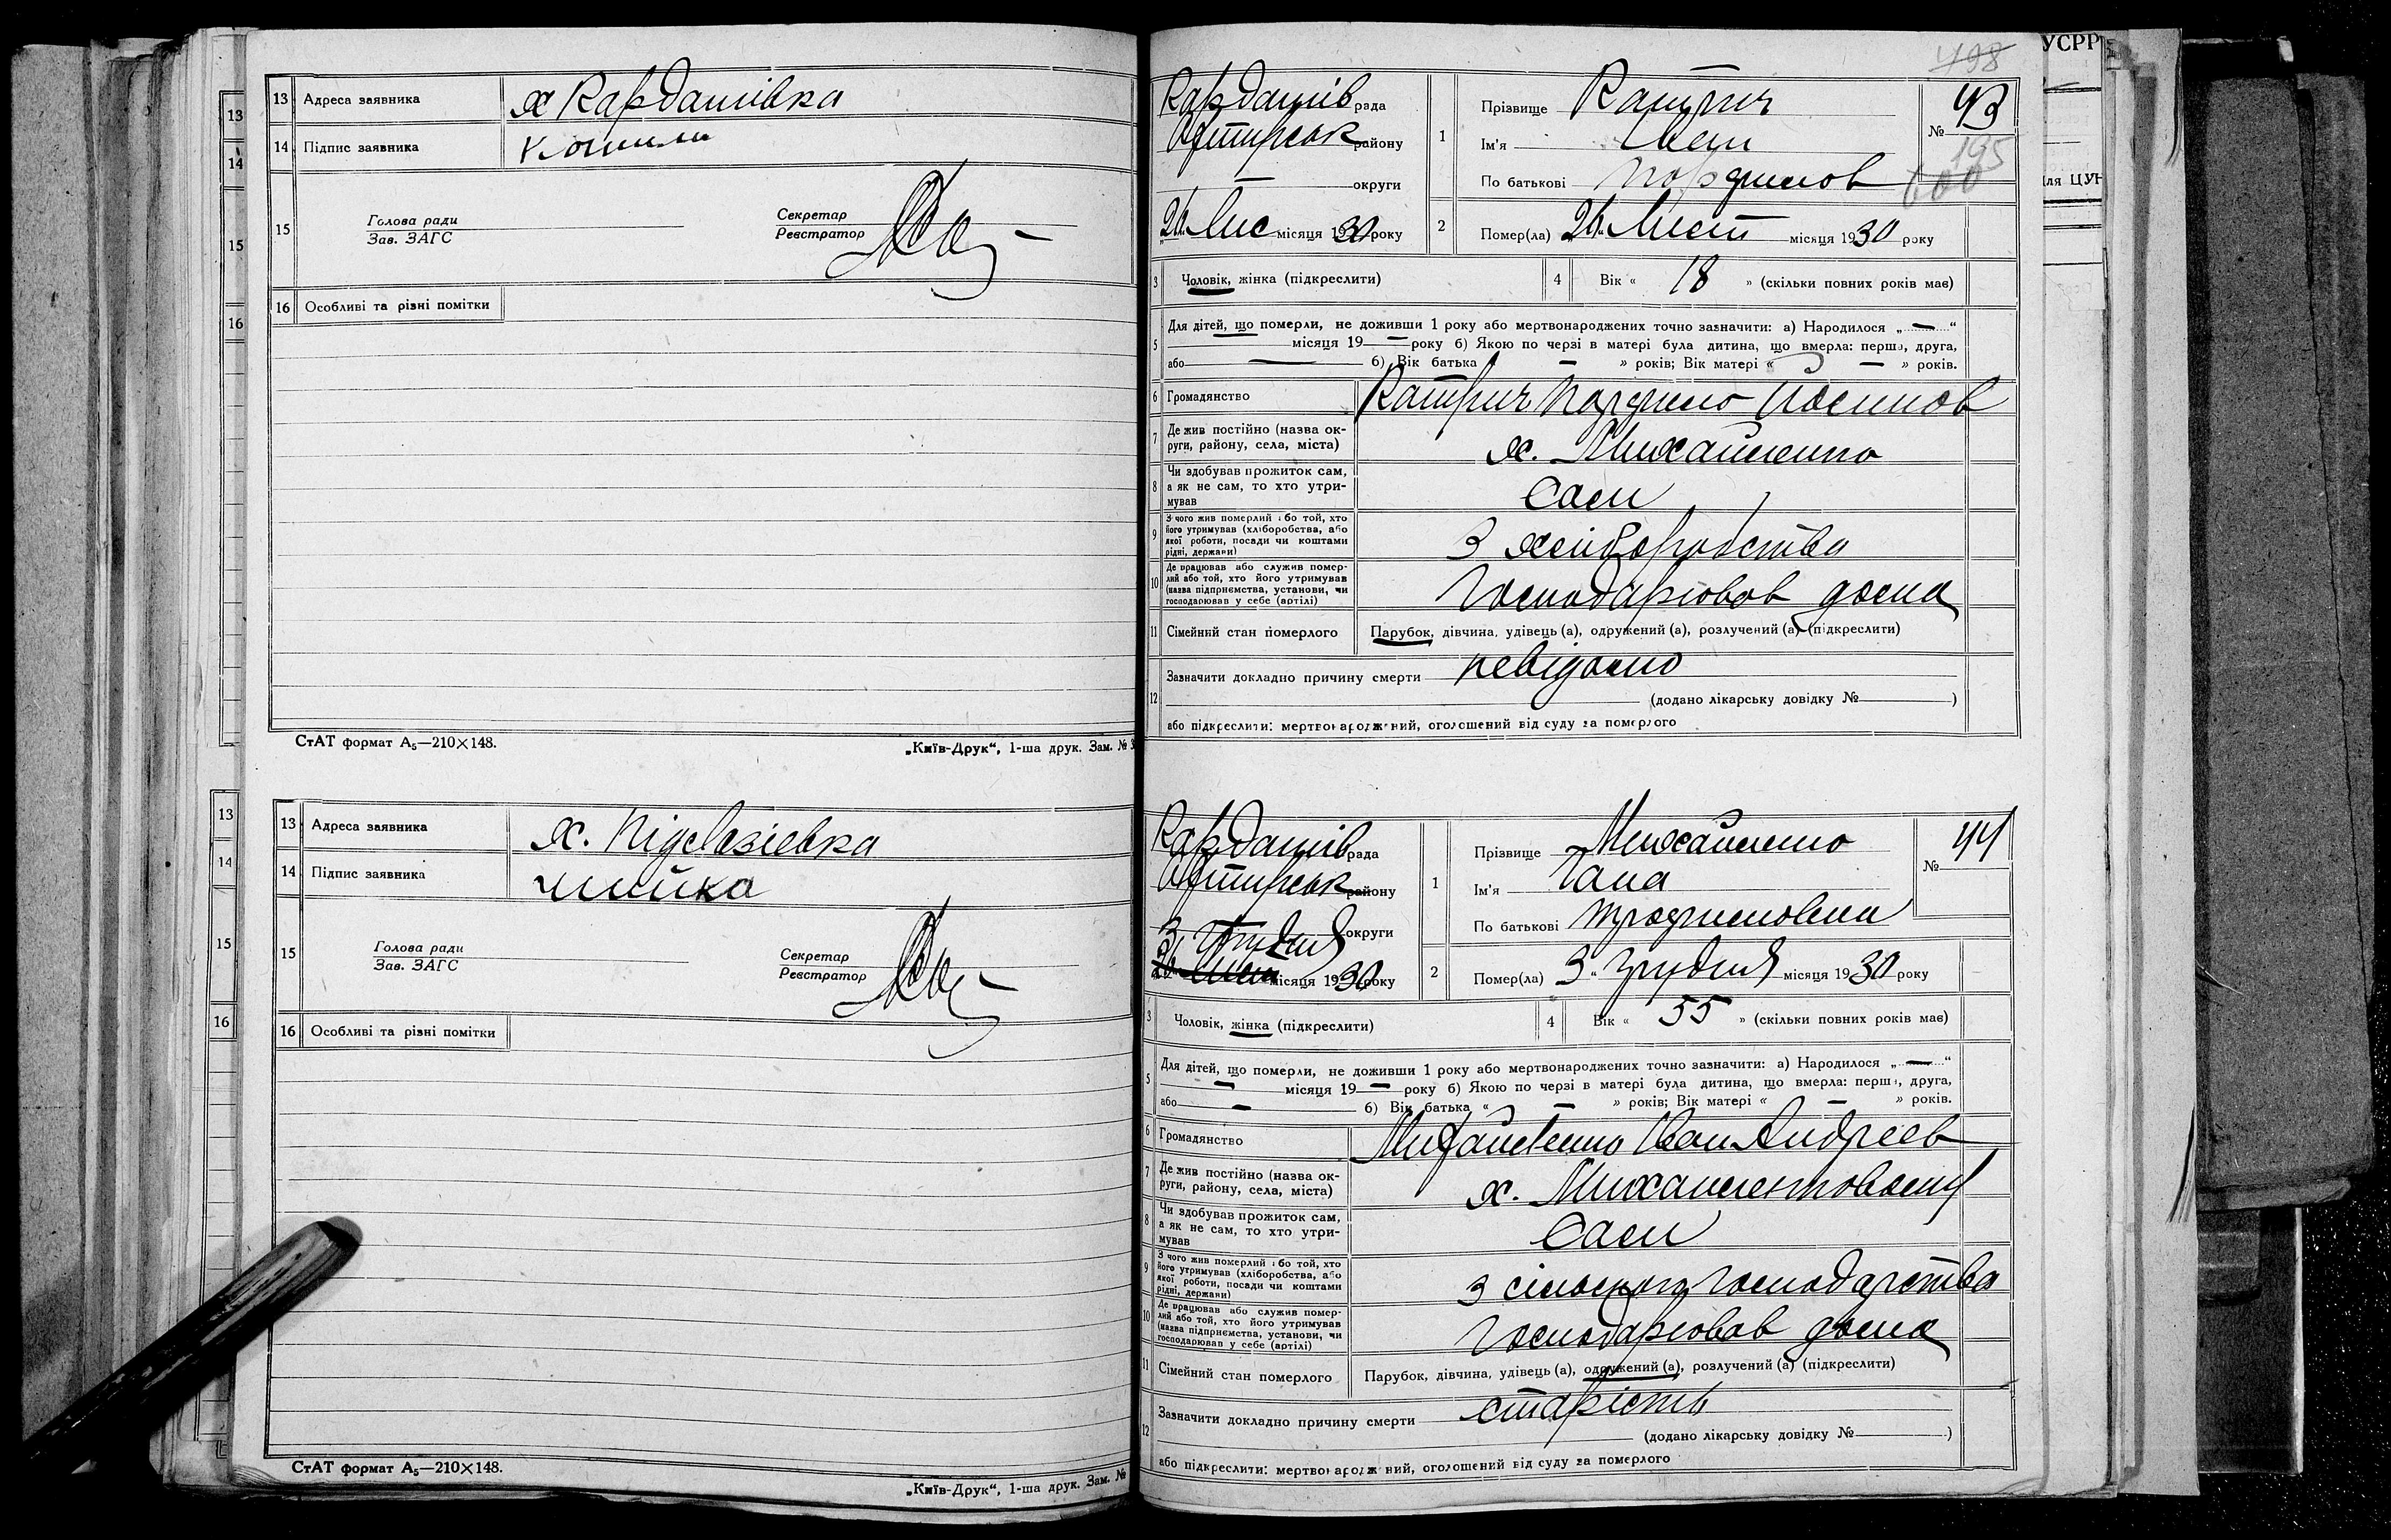 13 Адреса заявника х Кардашівка
14 Підпис заявника
15 Голова ради
Зав. ЗАГС
Секретар
Реєстратор
16 Особливі та різні помітки
СтАТ формат А₅—210×148.
„Київ-Друк“, 1-ша друк. Зам. №
13 Адреса заявника х.
14 Підпис заявника
15 Голова ради
Зав. ЗАГС
Секретар
Реєстратор
16 Особливі та різні помітки
СтАТ формат А₅—210×148.
„Київ-Друк“, 1-ша друк. Зам. №
498
Кардашів рада
Охтирськ району
округи
26 Лис місяця 1930 року
1 Прізвище Катрич
Ім'я Іван
По батькові
№ 43
195
600
2 Помер(ла) „26“ Лист місяця 1930 року
3 Чоловік, жінка (підкреслити) 4 Вік « 18 » (скільки повних років має)
5 Для дітей, що померли, не доживши 1 року або мертвонароджених точно зазначити: а) Народилося „ — “
місяця 19 — року б) Якою по черзі в матері була дитина, що вмерла: перша, друга,
або — 6) Вік батька — » років; Вік матері « — » років.
6 Громадянство Катрич
7 Де жив постійно (назва округи, району, села, міста) х. Михайленко
8 Чи здобував прожиток сам, а як не сам, то хто утримував Сам
9 З чого жив померлий або той, хто його утримував (хліборобства, або якої роботи, посади чи коштами рідні, держави) З хліборобства
10 Де працював або служив померлий або той, хто його утримував (назва підприємства, установи, чи господарював у себе (артілі) Господарював дома
11 Сімейний стан померлого Парубок, дівчина, удівець (а), одружений (а), розлучений (а) (підкреслити)
12 Зазначити докладно причину смерти невідомо
(додано лікарську довідку № )
або підкреслити: мертвонароджений, оголошений від суду за померлого
Кардашів рада
Охтирськ району
3 Грудня округи
місяця 1930 року
1 Прізвище Михайленко
Ім'я Гана
По батькові
№ 44
2 Помер(ла) 3 „ грудня місяця 1930 року
3 Чоловік, жінка (підкреслити) 4 Вік « 55 » (скільки повних років має)
5 Для дітей, що померли, не доживши 1 року або мертвонароджених точно зазначити: а) Народилося „ — “
— місяця 19 — року б) Якою по черзі в матері була дитина, що вмерла: перша, друга,
або — 6) Вік батька « — » років; Вік матері « — » років.
6 Громадянство Михайленко Іван Андреєв
7 Де жив постійно (назва округи, району, села, міста) х.
8 Чи здобував прожиток сам, а як не сам, то хто утримував Сам
9 З чого жив померлий або той, хто його утримував (хліборобства, або якої роботи, посади чи коштами рідні, держави) з сільського господарства
10 Де працював або служив померлий або той, хто його утримував (назва підприємства, установи, чи господарював у себе (артілі) Господарював дома
11 Сімейний стан померлого Парубок, дівчина, удівець (а), одружений (а), розлучений (а) (підкреслити)
12 Зазначити докладно причину смерти старість
(додано лікарську довідку № )
або підкреслити: мертвонароджений, оголошений від суду за померлого
УСРР